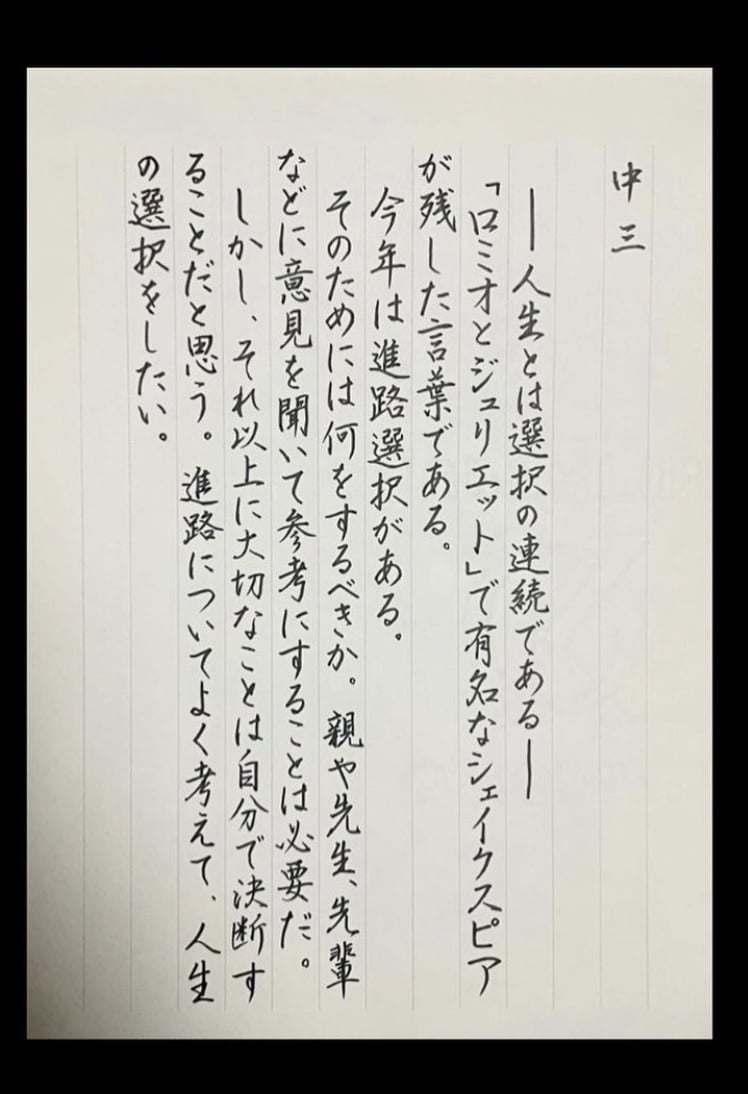 中三
―人生とは選択の連続である―
「ロミオとジュリエット」で有名なシェイクスピア
が残した言葉である。
今年は進路選択がある。
そのためには何をするべきか。親や先生、先輩
などに意見を聞いて参考にすることは必要だ。
しかし、それ以上に大切なことは自分で決断す
ることだと思う。進路についてよく考えて、人生
の選択をしたい。